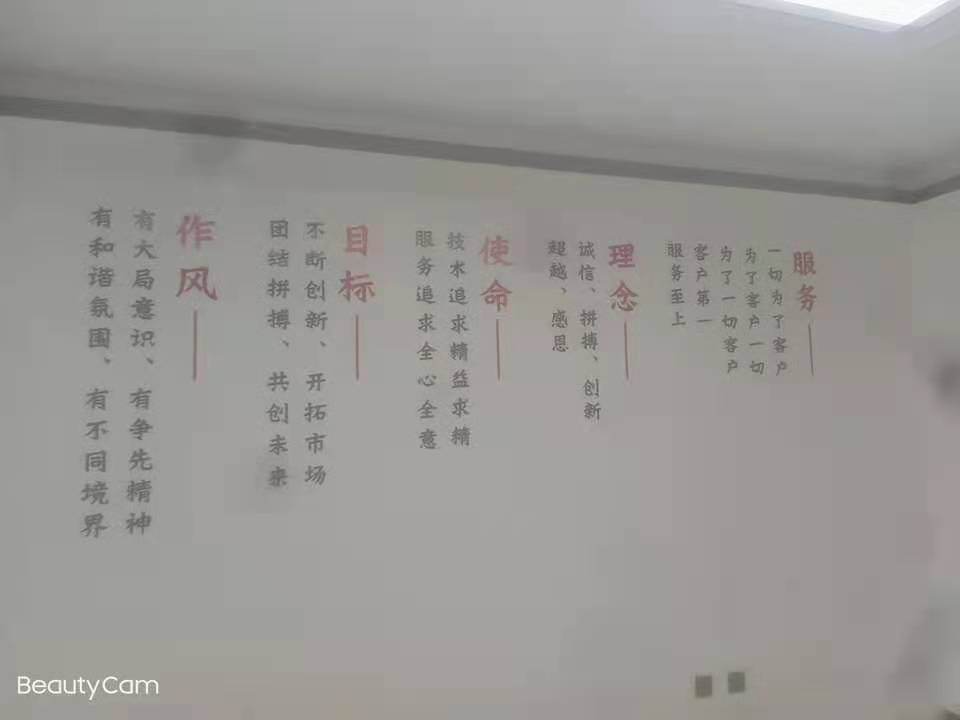 服务
一切为了客户
为了客户一切
为了一切客户
客户第一
服务至上
理念
诚信、拼搏、创新
超越、感恩
使命
技术追求精益求精
服务追求全心全意
目标
不断创新、开拓市场
团结拼搏、共创未来
作风
有大局意识、有争先精神
有和谐氛围、有不同境界
BeautyCam